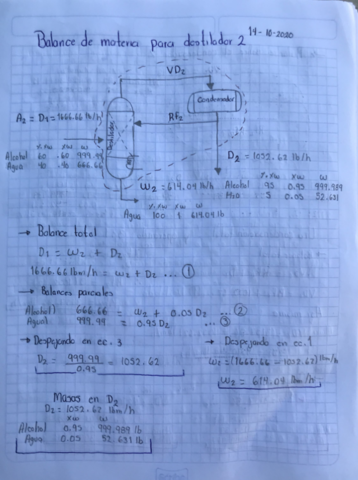 14-10-2020
Balance de materia para destilador 2
VD₂
Condensador
Rf₂
Destilador
A₂ = D₁ = 1666.66 lb/h
%xw xw w
Alcohol 60 .60 999.99
Agua 40 .40 666.66
D₂ = 1052.63 lb/h
%xw xw w
Alcohol 95 0.95 999.989
Agua 5 0.05 52.631
W₂ = 614.04 lb/h
%xw xw w
Agua 100 1 614.04 lb
→ Balance total
D₁ = W₂ + D₂
1666.66 lbm/h = W₂ + D₂ ... ①
→ Balances parciales
Alcohol) 666.66 = W₂ + 0.05 D₂ ... ②
Agua) 999.99 = 0.95 D₂ ... ③
→ Despejando en ec. 3
D₂ = 999.99 = 1052.62
0.95
→ Despejando en ec. 1
W₂ = (1666.66 - 1052.62) lbm/h
W₂ = 614.04 lbm/h
Masas en D₂
D₂ = 1052.62 lbm/h
xw w
Alcohol 0.95 999.989 lb
Agua 0.05 52.631 lb